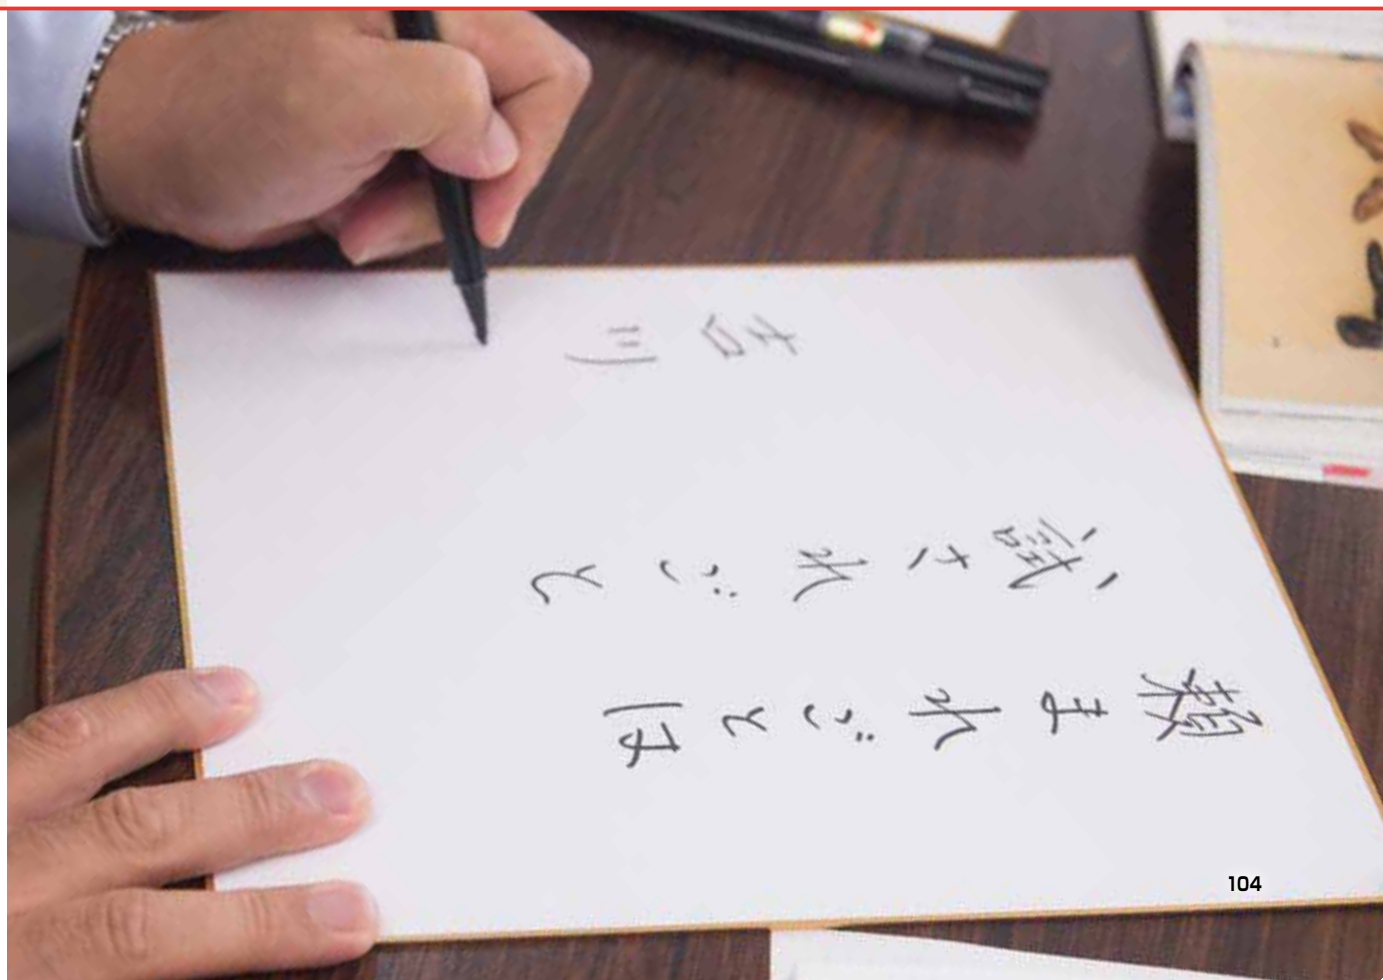 頼まれごとは
試されごと
吉川
104